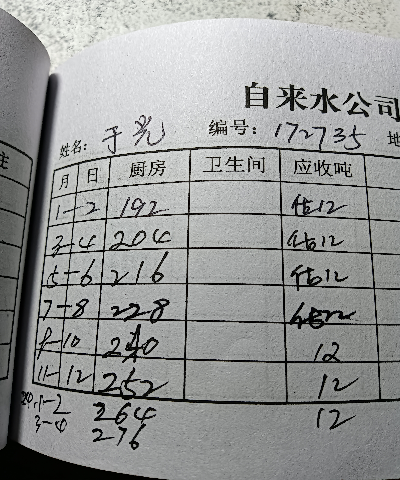 自来水公司
姓名: 于光 编号: 172735 地
月 日 厨房 卫生间 应收吨
1-2 192 估12
3-4 204 估12
5-6 216 估12
7-8 228 估12
9-10 240 12
11-12 252 12
1-2 264 12
3-4 276